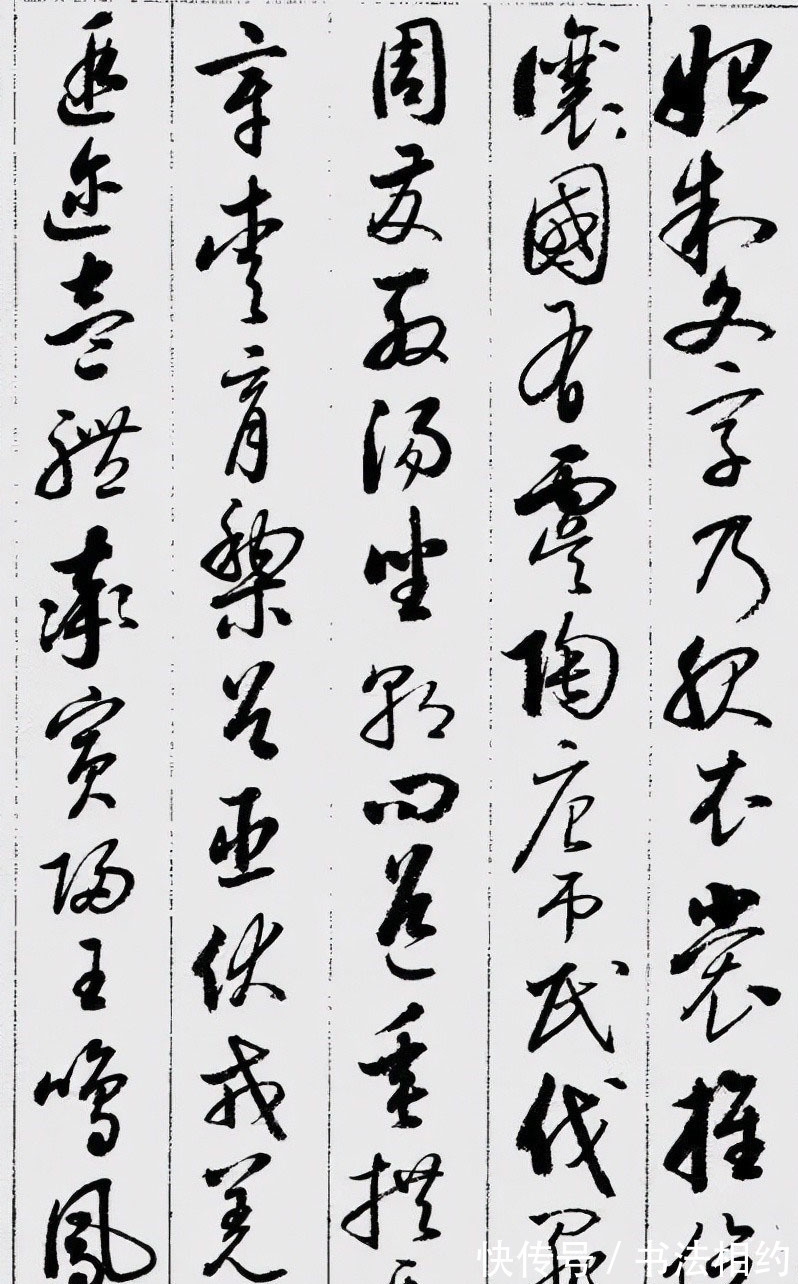 始制文字乃服衣裳推位
讓國有虞陶唐弔民伐罪
周發殷湯坐朝問道垂拱平
章愛育黎首臣伏戎羌
遐邇壹體率賓歸王鳴鳳
快传号 / 书法相约